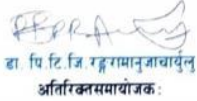 डा. पि.टि.जि. रङ्गरामानुजाचार्युलु
अतिरिक्तसमायोजक: